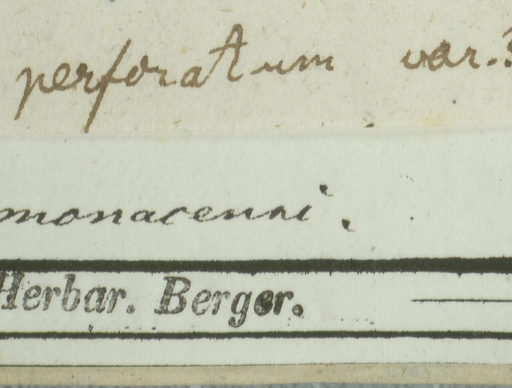 perforatum var.?
monacensi.
Herbar. Berger.